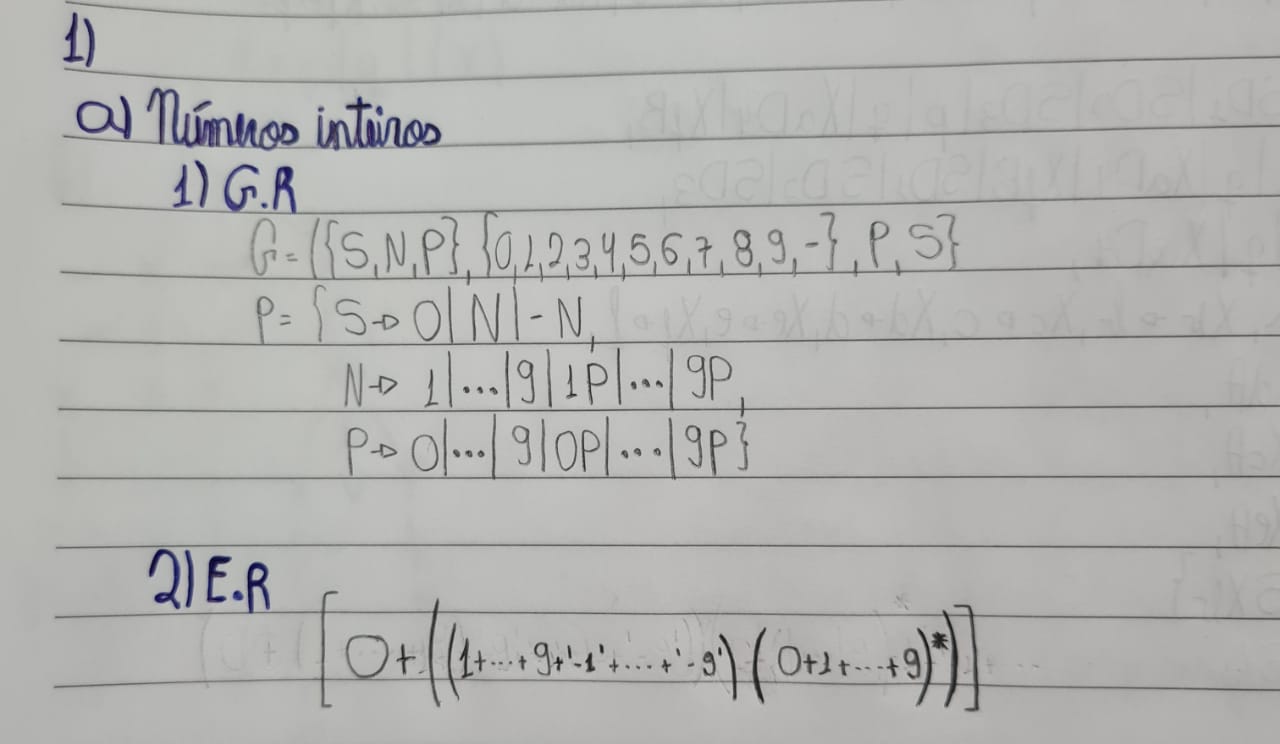 1)
a) Números inteiros
1) G.R
G=({S,N,P},{0,1,2,3,4,5,6,7,8,9,-},P,S}
P={S→0|N|-N,
N→1|...|9|1P|...|9P,
P→0|...|9|0P|...|9P}
2) E.R
[0+((1+...+9+'-1'+...+'-9')(0+1+...+9)*)]